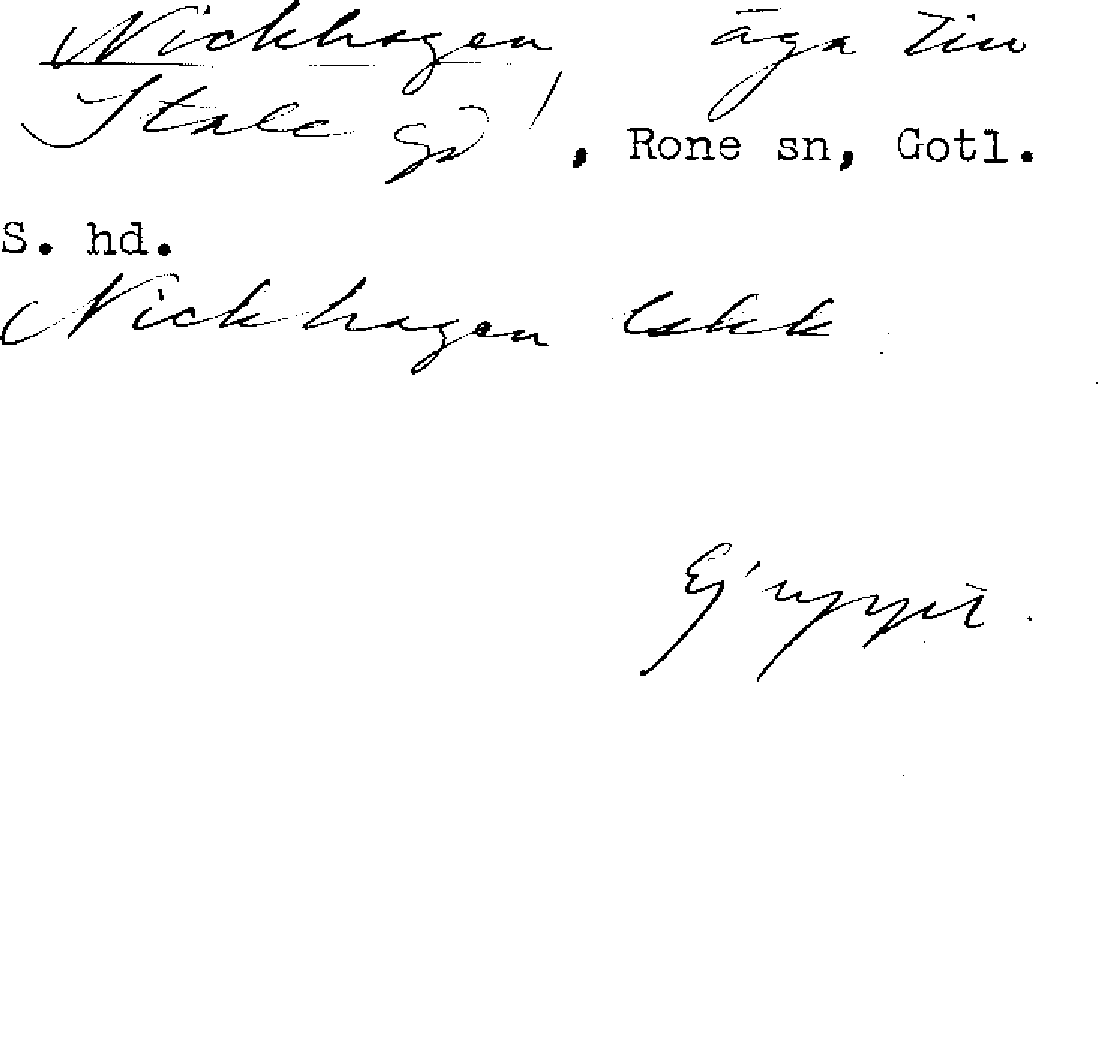 Nickhagen, äga till
Stale gd, Rone sn, Gotl.
S. hd.
Nickhagen Eskk
Ej uppt.